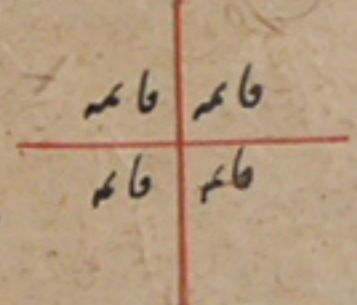 قائمه قائمه
قائمه قائمه